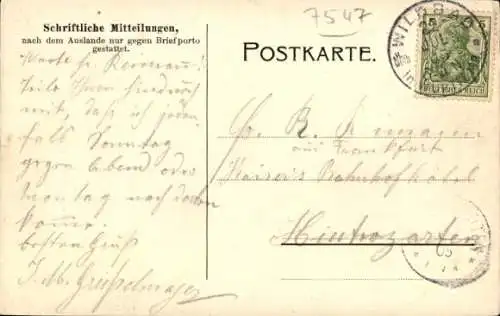 Schriftliche Mitteilungen,
nach dem Auslande nur gegen Briefporto
gestattet.
7547
POSTKARTE.
WILDBAD
5 5
DEUTSCHES REICH
Werte Fr.
teile Ihnen hiedurch
mit, daß ich jeden
falls Sonntag
gegen Abend oder
Montag nach dorten
komme.
besten Gruß
aus Frankfurt
Kaiser's Bahnhofhotel
Hinterzarten